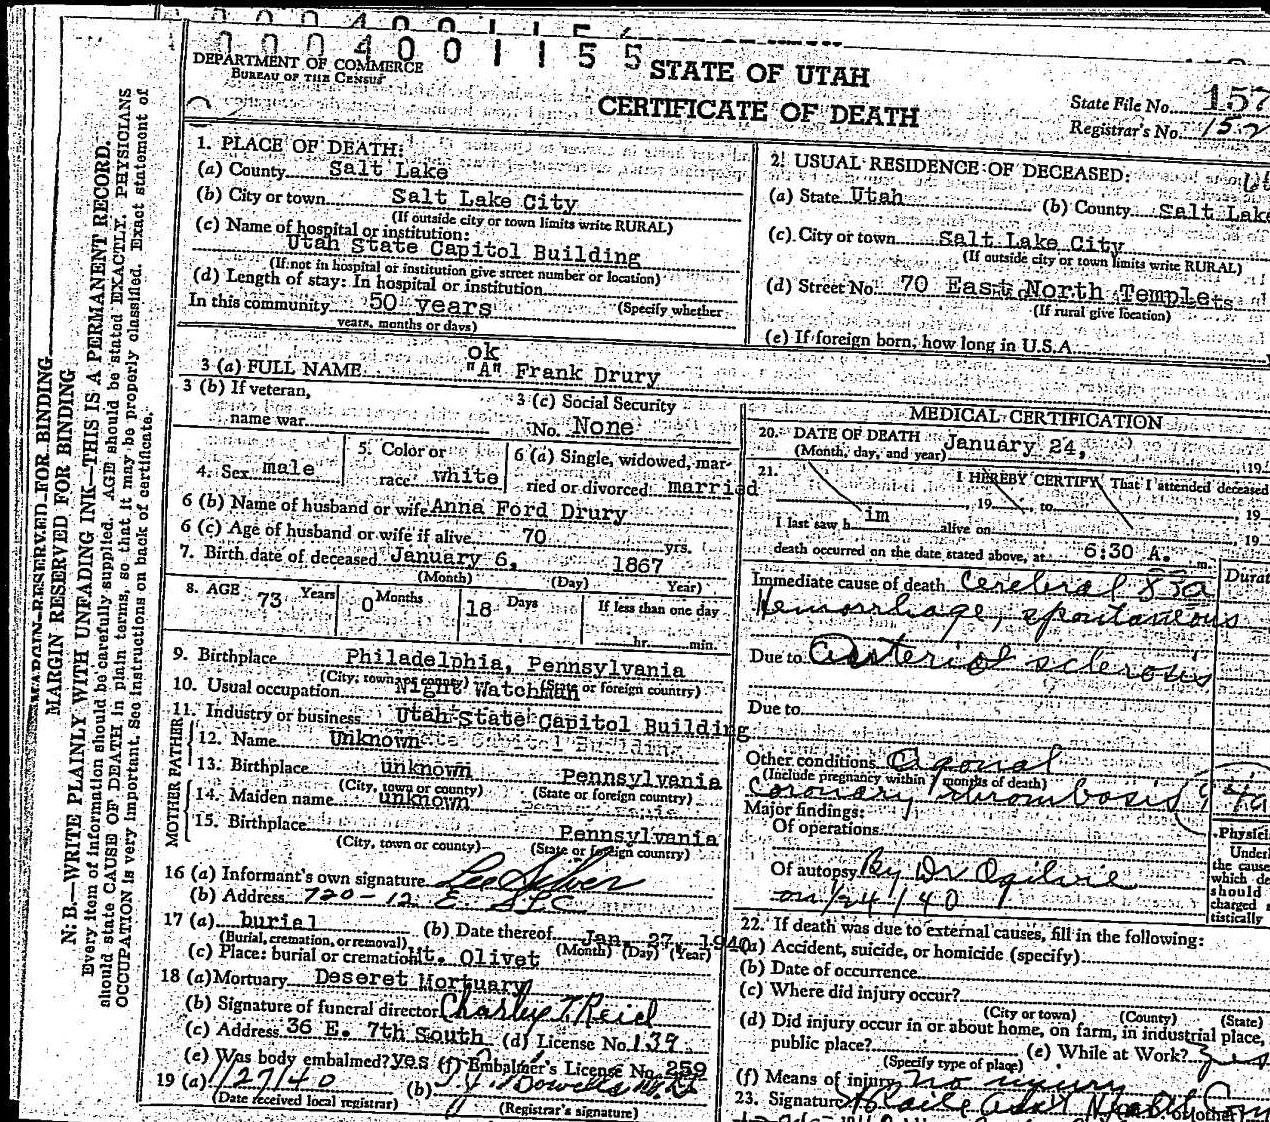 0 0 0 4 0 0 1 1 5 5
DEPARTMENT OF COMMERCE
BUREAU OF THE CENSUS
STATE OF UTAH
CERTIFICATE OF DEATH
State File No. 157
Registrar's No. 152
MARGIN RESERVED FOR BINDING
MARGIN RESERVED FOR BINDING
N. B.—WRITE PLAINLY WITH UNFADING INK—THIS IS A PERMANENT RECORD.
Every item of information should be carefully supplied. AGE should be stated EXACTLY. PHYSICIANS
should state CAUSE OF DEATH in plain terms, so that it may be properly classified. Exact statement of
OCCUPATION is very important. See instructions on back of certificate.
1. PLACE OF DEATH:
(a) County Salt Lake
(b) City or town Salt Lake City
(If outside city or town limits write RURAL)
(c) Name of hospital or institution:
Utah State Capitol Building
(If not in hospital or institution give street number or location)
(d) Length of stay: In hospital or institution
In this community 50 years (Specify whether
years, months or days)
2. USUAL RESIDENCE OF DECEASED:
(a) State Utah (b) County Salt Lake
(c) City or town Salt Lake City
(If outside city or town limits write RURAL)
(d) Street No. 70 East North Temple
(If rural give location)
(e) If foreign born, how long in U.S.A.
ok
3 (a) FULL NAME "A" Frank Drury
3 (b) If veteran,
name war
3 (c) Social Security
No. None
4. Sex male
5. Color or
race white
6 (a) Single, widowed, mar-
ried or divorced married
6 (b) Name of husband or wife Anna Ford Drury
6 (c) Age of husband or wife if alive 70 yrs.
7. Birth date of deceased January 6, 1867
(Month) (Day) Year)
8. AGE 73 Years 0 Months 18 Days If less than one day
hr. min.
9. Birthplace Philadelphia, Pennsylvania
(City, town or county) (State or foreign country)
10. Usual occupation Night Watchman
11. Industry or business Utah State Capitol Building
FATHER
12. Name Unknown
13. Birthplace unknown Pennsylvania
(City, town or county) (State or foreign country)
MOTHER
14. Maiden name unknown
15. Birthplace Pennsylvania
(City, town or county) (State or foreign country)
16 (a) Informant's own signature Lee Silver
(b) Address 720-12 E. SLC
17 (a) burial (b) Date thereof Jan. 27, 1940
(Burial, cremation, or removal) (Month) (Day) (Year)
(c) Place: burial or cremation Mt. Olivet
18 (a) Mortuary Deseret Mortuary
(b) Signature of funeral director Charles T Reid
(c) Address 36 E. 7th South (d) License No. 139
(e) Was body embalmed? yes (f) Embalmer's License No. 259
19 (a) 1/27/40 (b)
(Date received local registrar) (Registrar's signature)
MEDICAL CERTIFICATION
20. DATE OF DEATH January 24,
(Month, day, and year) 19
21. I HEREBY CERTIFY That I attended deceased
, 19 , to 19
I last saw h im alive on 19
death occurred on the date stated above, at 6:30 A. m.
Immediate cause of death Cerebral 83a
Hemorrhage, spontaneous
Durat
Due to Arterio sclerosis
Due to
Other conditions Agonal
(Include pregnancy within months of death)
Coronary thrombosis
Major findings:
Of operations
Of autopsy By Dr Ogilvie
on 1/24/40
Physici
Underl
the cause
which de
should
charged s
tistically
22. If death was due to external causes, fill in the following:
(a) Accident, suicide, or homicide (specify)
(b) Date of occurrence
(c) Where did injury occur?
(City or town) (County) (State)
(d) Did injury occur in or about home, on farm, in industrial place,
public place? (e) While at Work? yes
(Specify type of place)
(f) Means of injury no injury
23. Signature